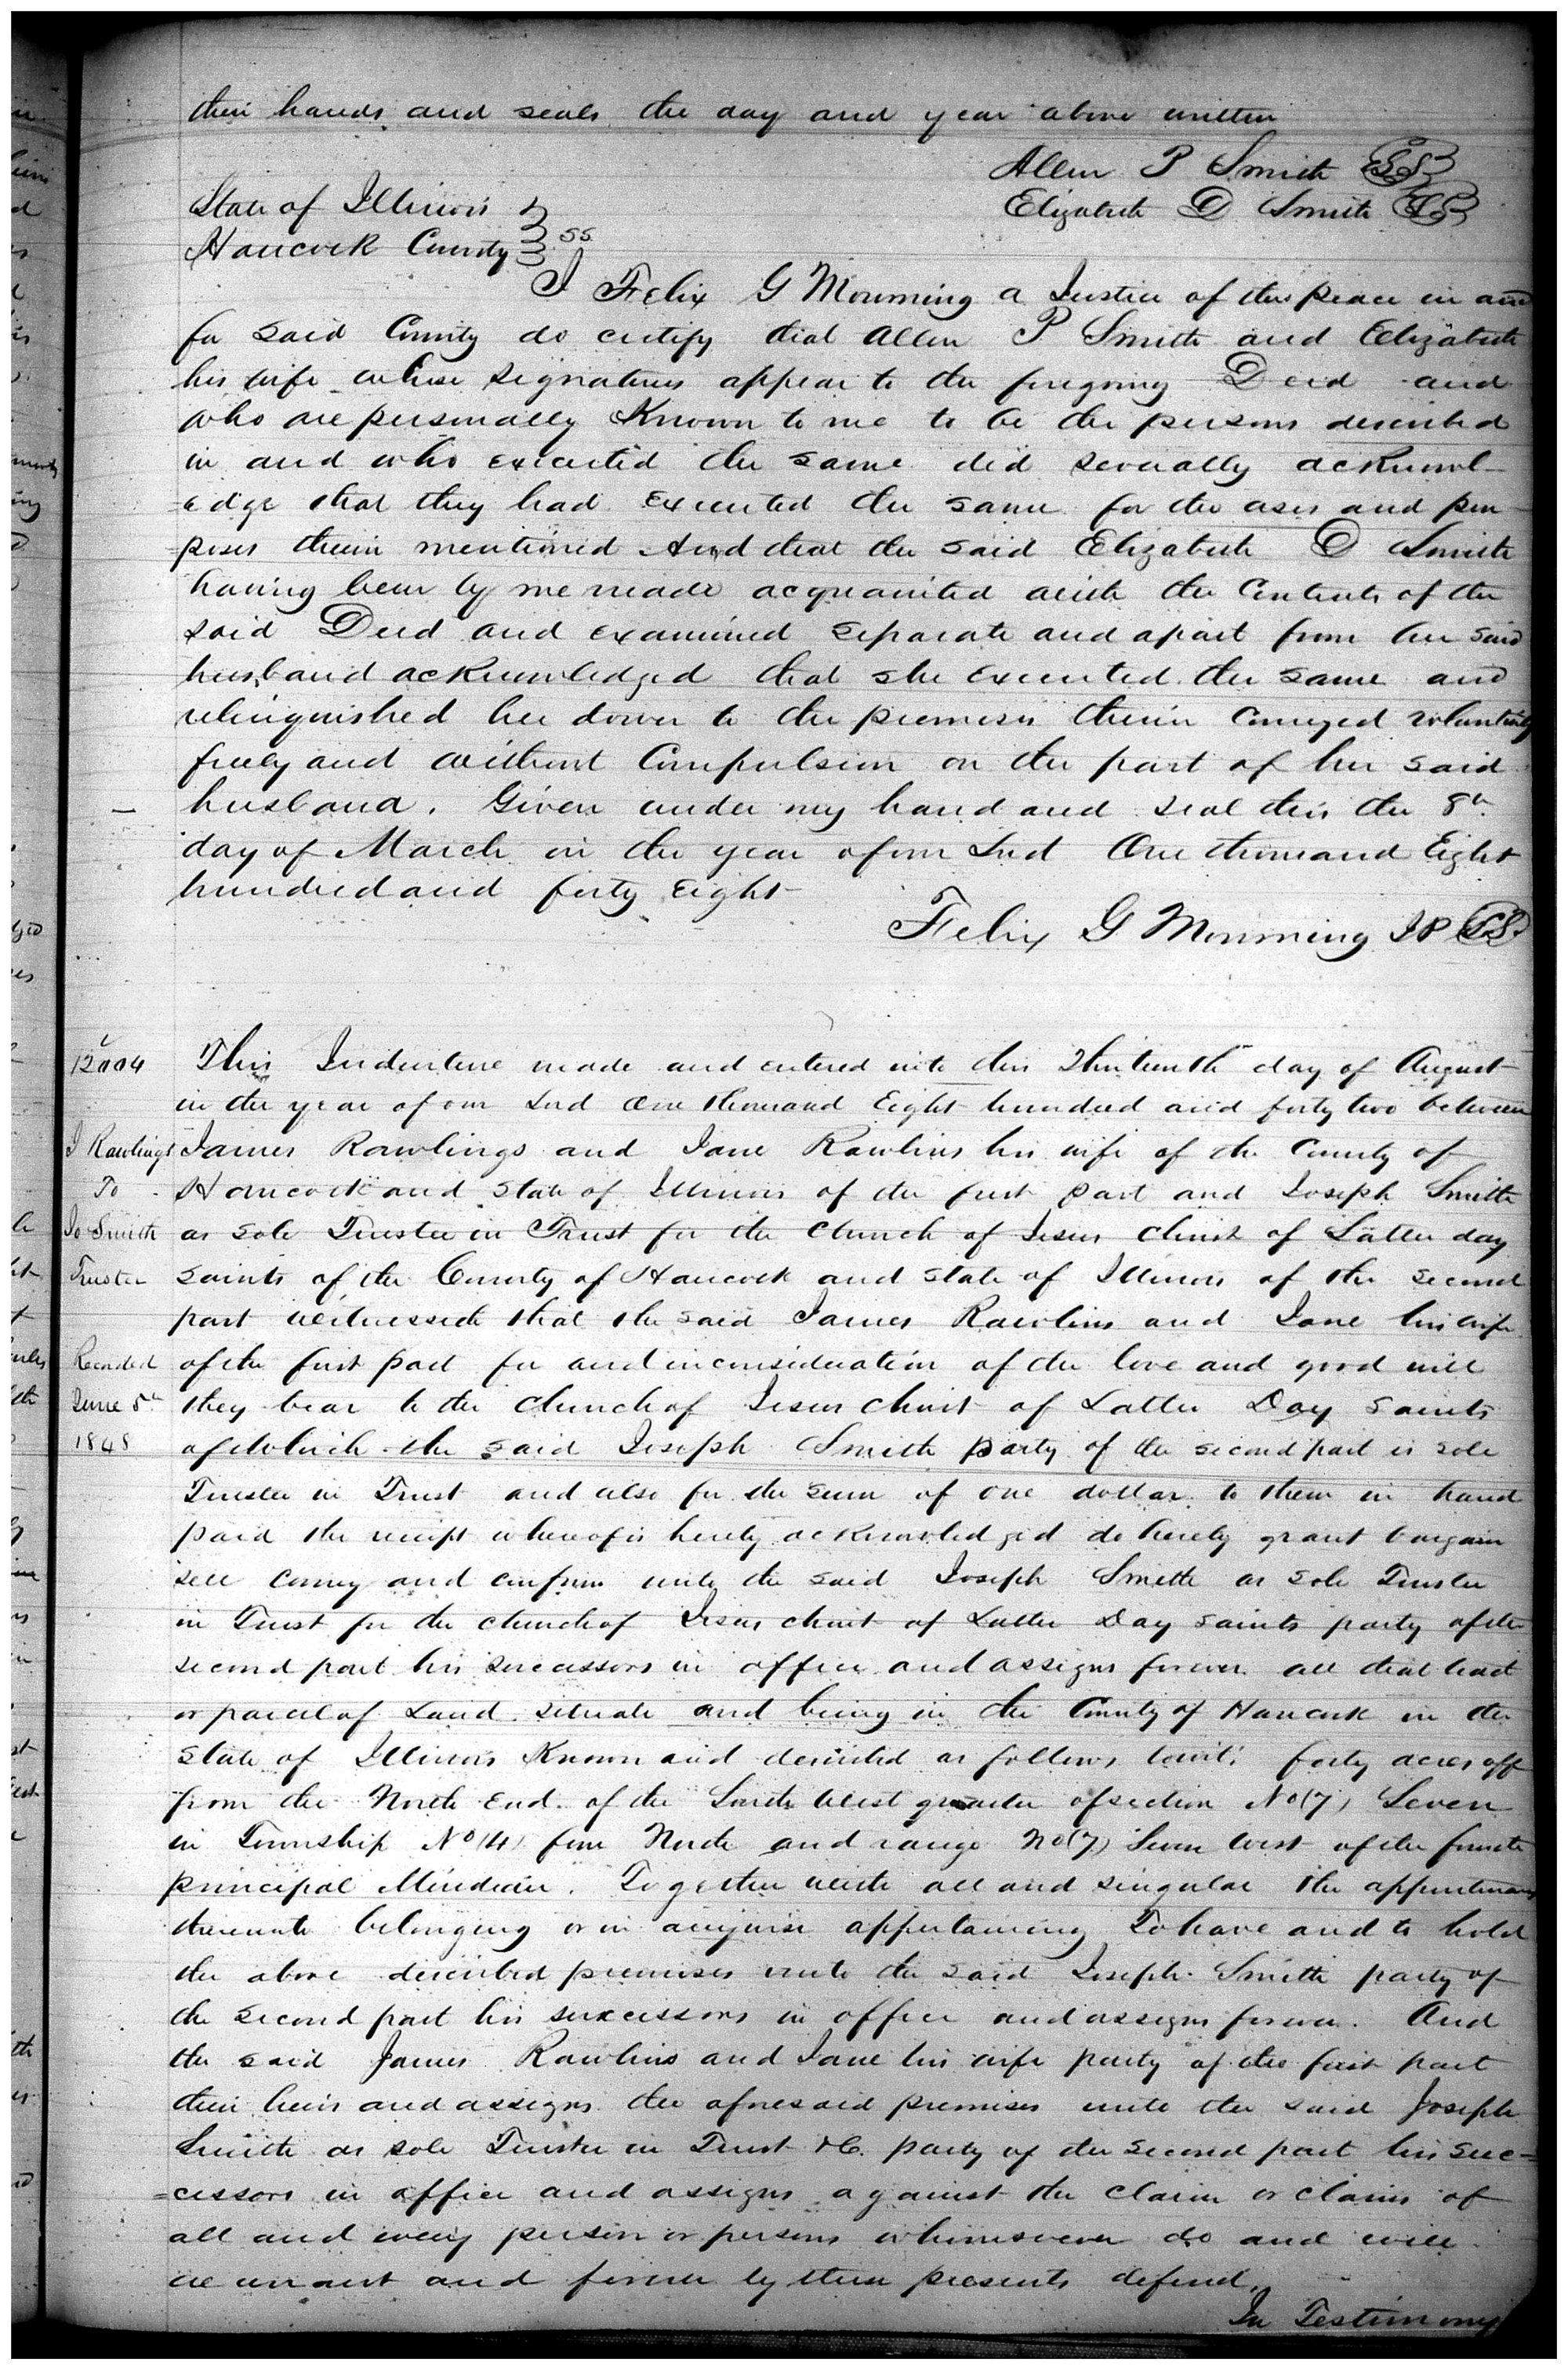 their hands and seals the day and year above written
Allen P Smith LS
Elizabeth D Smith LS
State of Illinois
Hancock County ss
I Felix G Mourning a Justice of the peace in and
for said County do certify that Allen P Smith and Elizabeth
his wife whose signatures appear to the foregoing Deed and
who are personally Known to me to be the persons described
in and who executed the same did severally acknowl-
=edge that they had executed the same for the uses and pur
poses therein mentioned And that the said Elizabeth D Smith
having been by me made acquainted with the Contents of the
said Deed and examined separate and apart from her said
husband acknowledged that she executed the same and
relinquished her dower to the premises therein Conveyed voluntarily
freely and without Compulsion on the part of her said
husband. Given under my hand and seal this the 8th
day of March in the year of our Lord One thousand Eight
hundred and forty eight
Felix G Mourning JP LS
12004
This Indenture made and entered into this Thirteenth day of August
in the year of our Lord One thousand Eight hundred and forty two between
J Rawlings James Rawlings and Jane Rawlins his wife of the County of
To Hancock and State of Illinois of the first part and Joseph Smith
Jo Smith as sole Trustee in Trust for the Church of Jesus Christ of Latter day
Trustee saints of the County of Hancock and State of Illinois of the second
part witnesseth that the said James Rawlins and Jane his wife
Recorded of the first part for and in consideration of the love and good will
June 5th they bear to the Church of Jesus Christ of Latter Day Saints
1848 of which the said Joseph Smith party of the second part is sole
Trustee in Trust and also for the sum of one dollar to them in hand
paid the receipt whereof is hereby acknowledged do hereby grant bargain
sell convey and confirm unto the said Joseph Smith as sole Trustee
in Trust for the church of Jesus christ of Latter Day saints party of the
second part his successors in office and assigns forever all that tract
or parcel of Land situate and being in the County of Hancock in the
State of Illinois Known and described as follows towit: forty acres off
from the North End of the South West quarter of section No (7) Seven
in Township No (4) four North and range No (7) Seven West of the fourth
principal Meridian. Together with all and singular the appurtenances
thereunto belonging or in anywise appertaining To have and to hold
the above described premises unto the said Joseph Smith party of
the second part his successors in office and assigns forever. And
the said James Rawlins and Jane his wife party of the first part
their heirs and assigns the aforesaid premises unto the said Joseph
Smith as sole Trustee in Trust &C. party of the second part his suc-
=cessors in office and assigns against the claim or claims of
all and every person or persons whomsoever do and will
warrant and forever by these presents defend.
In Testimony